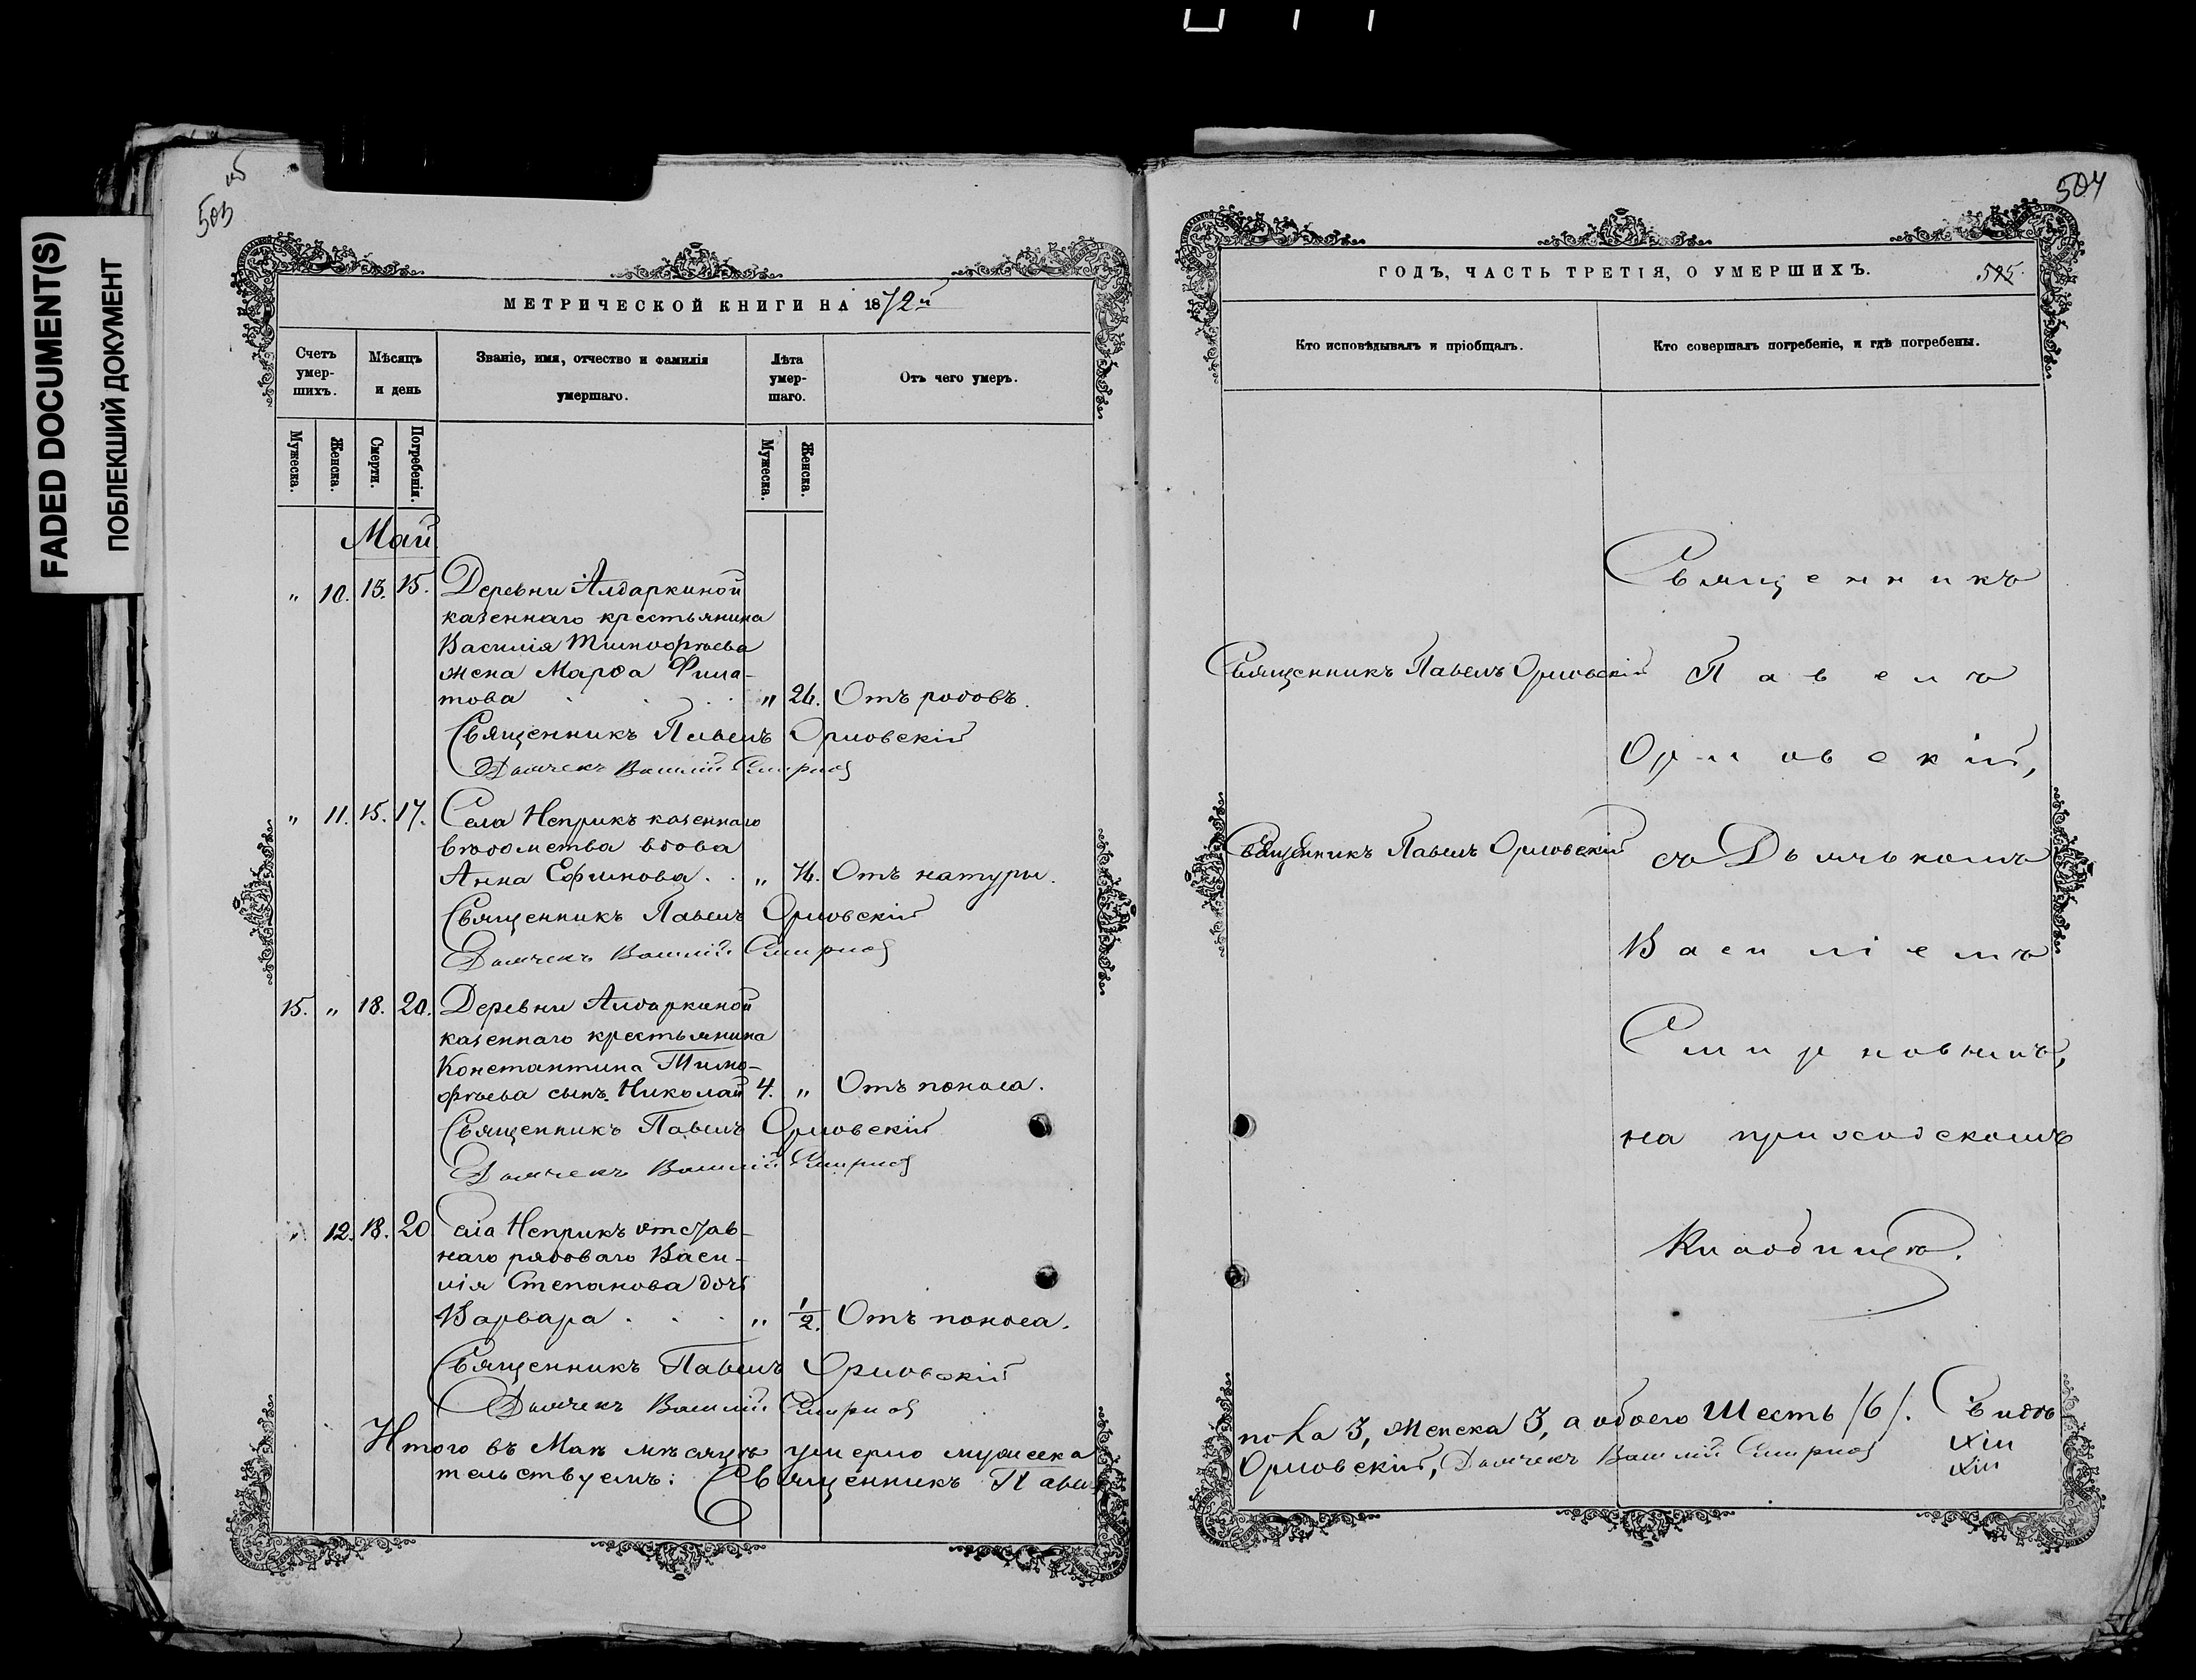 FADED DOCUMENT(S)
ПОБЛЕКШИЙ ДОКУМЕНТ
503 об
МЕТРИЧЕСКОЙ КНИГИ НА 1872й
Счетъ умер-шихъ.
Мѣсяцъ и день
Званіе, имя, отчество и фамилія умершаго.
Лѣта умер-шаго.
Отъ чего умеръ.
Мужеска.
Женска.
Смерти.
Погребенія.
Мужеска.
Женска.
Май
" 10. 13. 15. Деревни Алдаркиной
казеннаго крестьянина
Василія Тимофѣева
жена Марѳа Фила-
това . . . " 26. Отъ родовъ.
Священникъ Павелъ Орловскій
Дьячекъ Василій Смирнов
" 11. 15. 17. Села Неприкъ казеннаго
вѣдомства вдова
Анна Ефимова . . " 76. Отъ натуры.
Священникъ Павелъ Орловскій
Дьячекъ Василій Смирнов
15. " 18. 20. Деревни Алдаркиной
казеннаго крестьянина
Константина Тимо-
фѣева сынъ Николай 4. " Отъ поноса.
Священникъ Павелъ Орловскій
Дьячекъ Василій Смирнов
" 12. 18. 20 Села Неприкъ отстав-
наго рядоваго Васи-
лія Степанова дочь
Варвара . . . " 1/2. Отъ поноса.
Священникъ Павелъ Орловскій
Дьячекъ Василій Смирнов
Итого въ Маѣ мѣсяцѣ умерло мужеска
тельствуемъ: Священникъ Павелъ
504
ГОДЪ, ЧАСТЬ ТРЕТІЯ, О УМЕРШИХЪ.
505.
Кто исповѣдывалъ и пріобщалъ.
Кто совершалъ погребеніе, и гдѣ погребены.
Священникъ
Священникъ Павелъ Орловскій
Павелъ
Орловскій,
Священникъ Павелъ Орловскій
съ Дьячькомъ
Василіемъ
Смирновымъ,
на приходскомъ
Кладбищѣ.
пола 3, женска 3, а обоего Шесть /6/. Свидѣ-
Орловскій, Дьячекъ Василій Смирнов